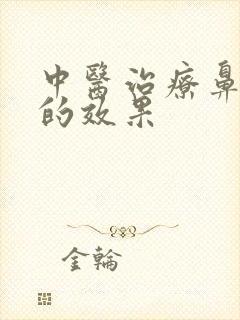 中醫治療鼻
的效果
金輪